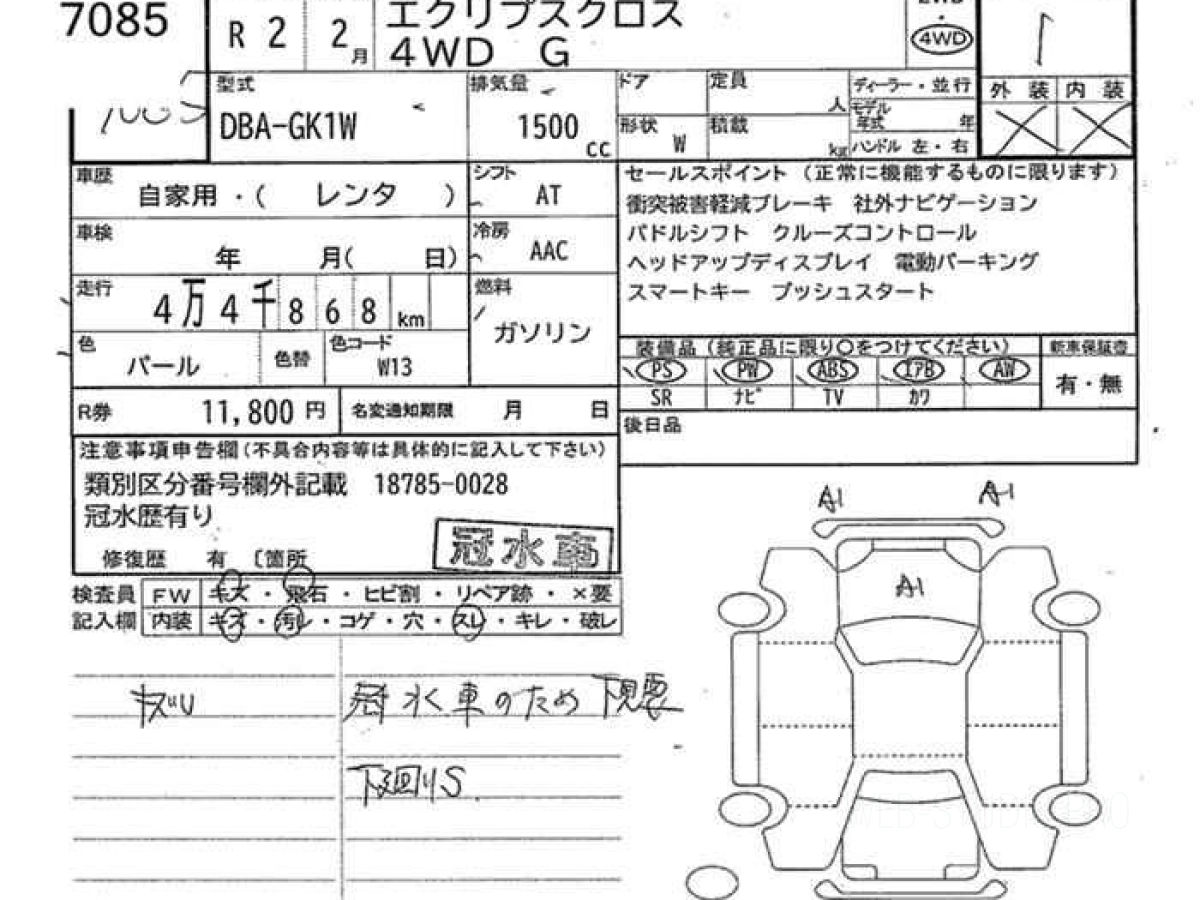 7085
R 2 2月
エクリプスクロス
4WD G
4WD
1
型式 DBA-GK1W
排気量 1500 cc
ドア
定員 人
形状 W
積載 kg
ディーラー・並行
モデル年式 年
ハンドル 左・右
外装 内装
× ×
車歴 自家用・( レンタ )
シフト AT
車検 年 月( 日)
冷房 AAC
走行 4万4千868km
燃料 ガソリン
色 パール
色替
色コード W13
R券 11,800円
名変通知期限 月 日
セールスポイント (正常に機能するものに限ります)
衝突被害軽減ブレーキ 社外ナビゲーション
パドルシフト クルーズコントロール
ヘッドアップディスプレイ 電動パーキング
スマートキー プッシュスタート
装備品(純正品に限り○をつけてください)
新車保証書
PS PW ABS エアB AW
SR ナビ TV カワ
有・無
後日品
注意事項申告欄(不具合内容等は具体的に記入して下さい)
類別区分番号欄外記載 18785-0028
冠水歴有り
冠水車
修復歴 有 〔箇所
検査員 FW キズ・飛石・ヒビ割・リペア跡・×要
記入欄 内装 キズ・汚レ・コゲ・穴・スレ・キレ・破レ
冠水車のため下見要
下廻りS
A1 A1
A1